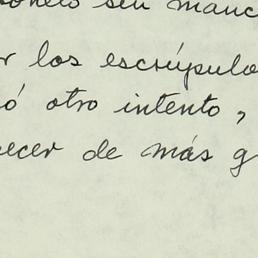 sin manc
r los escrúpulo
ó otro intento,
ecer de más g